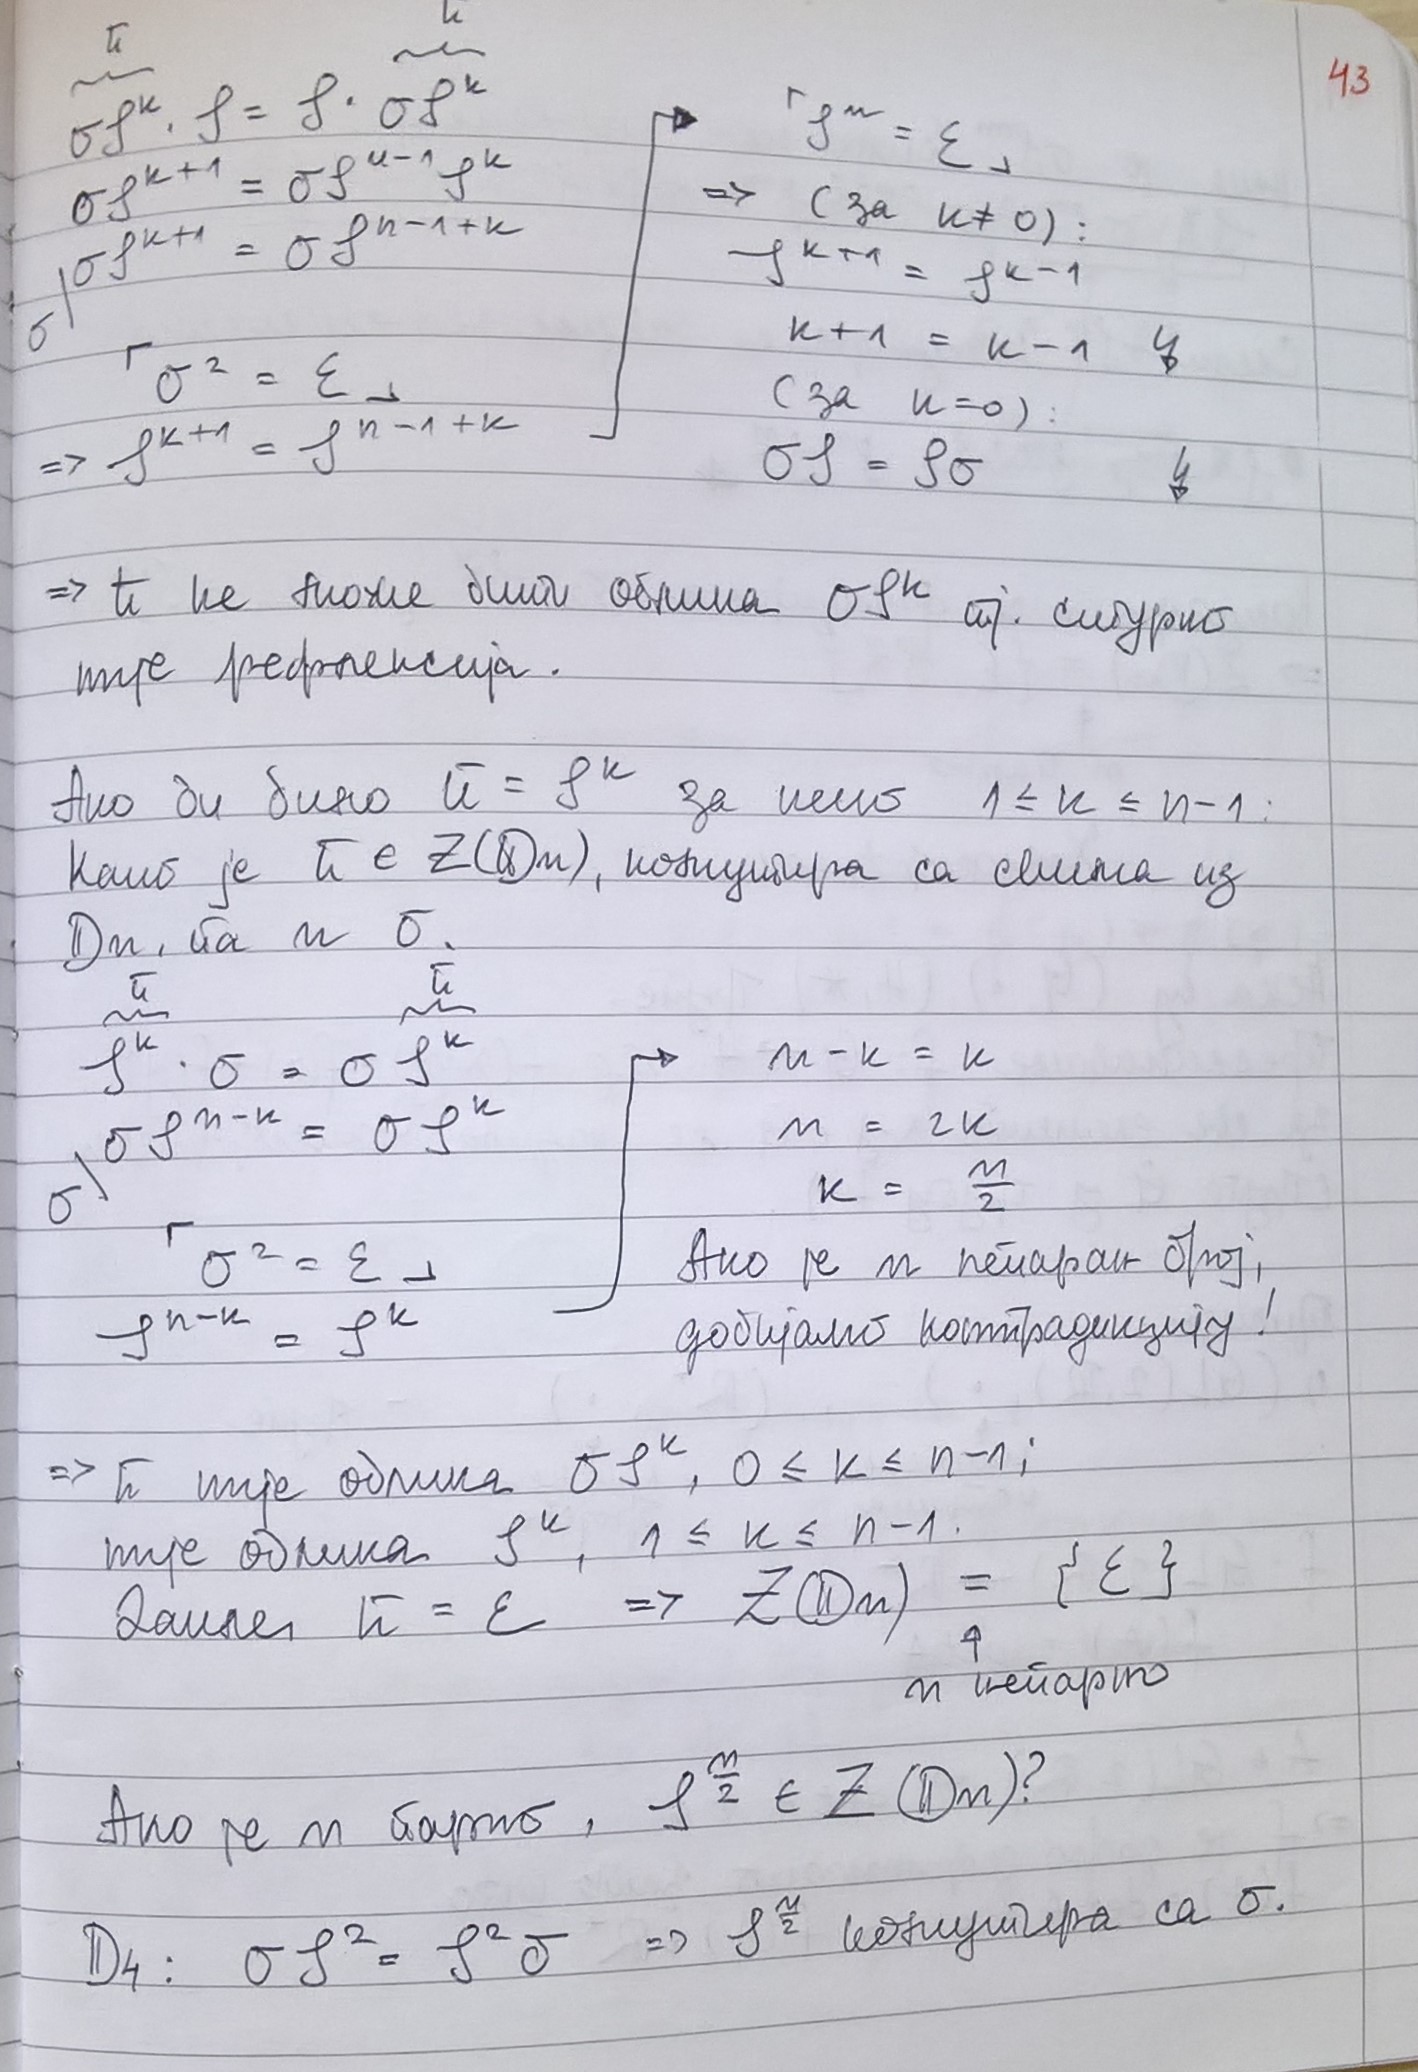 43
π π
σρᵏ · ρ = ρ · σρᵏ
σρᵏ⁺¹ = σρⁿ⁻¹ρᵏ
σ/ σρᵏ⁺¹ = σρⁿ⁻¹⁺ᵏ
⌜σ² = ε⌟
=> ρᵏ⁺¹ = ρⁿ⁻¹⁺ᵏ
⌜ρⁿ = ε⌟
=> (за k≠0):
ρᵏ⁺¹ = ρᵏ⁻¹
k+1 = k-1 ↯
(за k=0):
σρ = ρσ ↯
=> π не може бити облика σρᵏ тј. сигурно
није рефлексија.
Ако би било π = ρᵏ за неко 1 ≤ k ≤ n-1:
Како је π ∈ Z(𝔻n), комутира са свима из
𝔻n, па и σ.
π π
ρᵏ · σ = σρᵏ
σ\ σρⁿ⁻ᵏ = σρᵏ
⌜σ² = ε⌟
ρⁿ⁻ᵏ = ρᵏ
n-k = k
n = 2k
k = n/2
Ако је n непаран број,
добијамо контрадикцију!
=> π није облика σρᵏ, 0 ≤ k ≤ n-1;
није облика ρᵏ, 1 ≤ k ≤ n-1.
Дакле, π = ε => Z(𝔻n) = {ε}
↑
n непарно
Ако је n парно, ρ^(n/2) ∈ Z(𝔻n)?
𝔻₄: σρ² = ρ²σ => ρ^(n/2) комутира са σ.